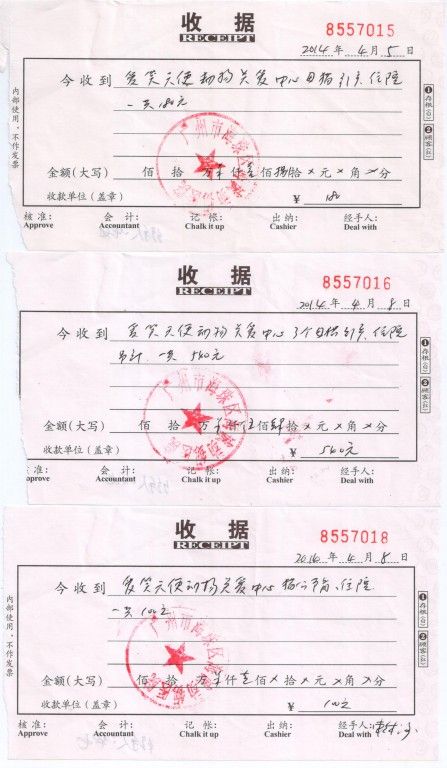 收 据
RECEIPT
8557015
2014 年 4 月 5 日
今收到 爱笑天使动物关爱中心 住院
一共180元
金额(大写) 佰 拾 万 仟壹佰捌拾×元×角×分
收款单位(盖章) ¥ 180
核准: 会计: 记帐: 出纳: 经手人:
Approve Accountant Chalk it up Cashier Deal with
内部使用,不作发票
①存根(白)
②顾客(红)
收 据
RECEIPT
8557016
2014 年 4 月 8 日
今收到 爱笑天使动物关爱中心 住院
一共 560元
金额(大写) 佰 拾 万 仟伍佰 拾×元×角×分
收款单位(盖章) ¥ 560元
核准: 会计: 记帐: 出纳: 经手人:
pprove Accountant Chalk it up Cashier Deal with
①存根(白)
②顾客(红)
收 据
RECEIPT
8557018
年 4 月 8 日
今收到 爱笑天使动物关爱中心 住院
一共100元
金额(大写) 佰 拾 万 仟壹佰×拾×元×角×分
收款单位(盖章) ¥ 100元
核准: 会计: 记帐: 出纳: 经手人:
Approve Accountant Chalk it up Cashier Deal with
内部使用,不作发票
①存根(白)
②顾客(红)
广州市海珠区